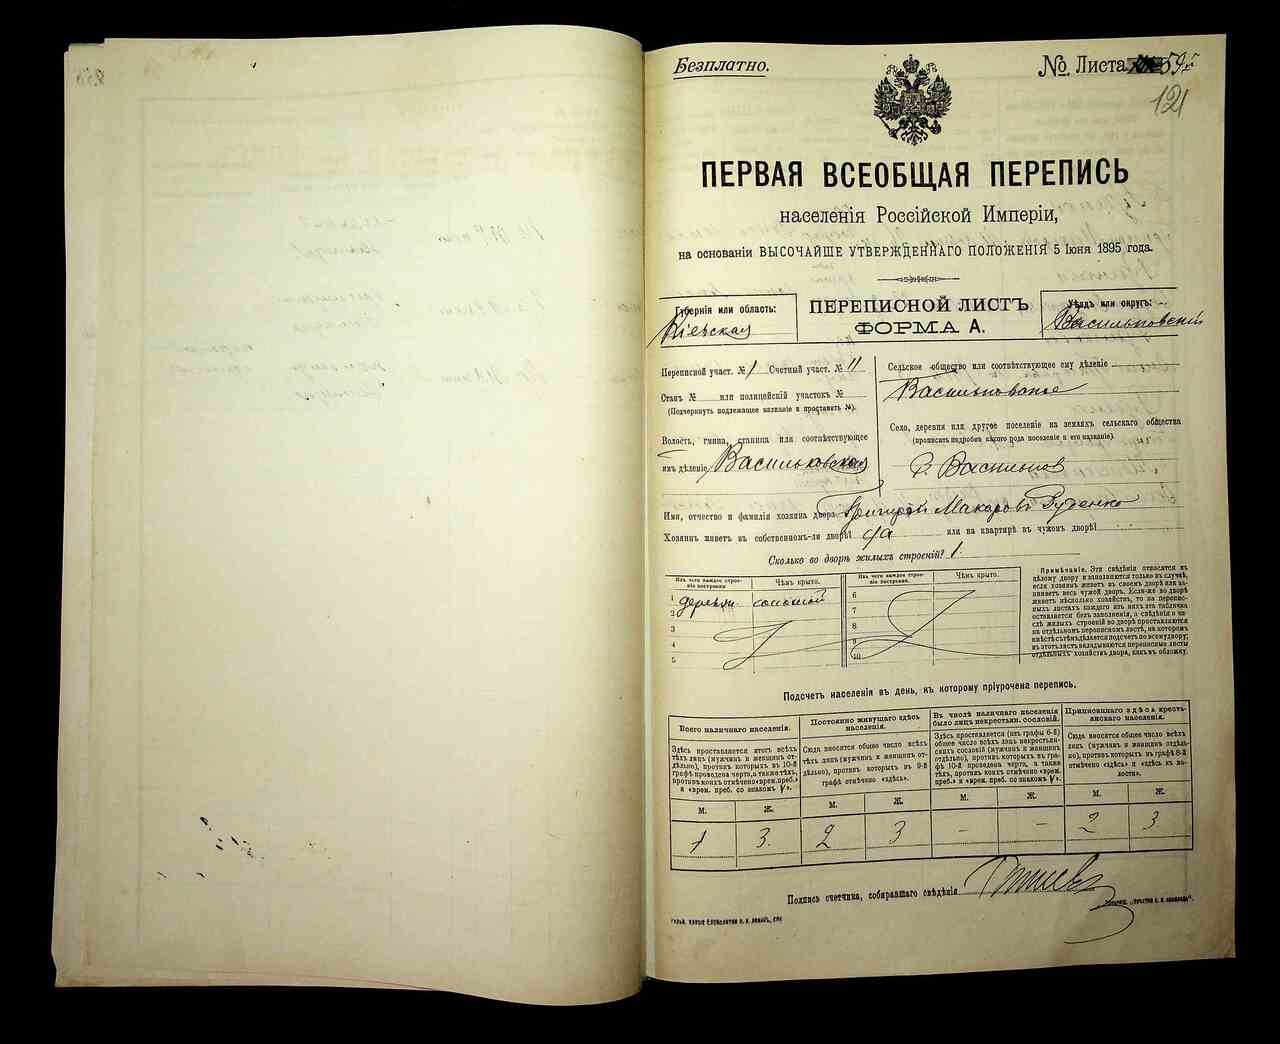 Безплатно.
№ Листа 59
121
ПЕРВАЯ ВСЕОБЩАЯ ПЕРЕПИСЬ
населенія Россійской Имперіи,
на основаніи ВЫСОЧАЙШЕ УТВЕРЖДЕННАГО ПОЛОЖЕНІЯ 5 Іюня 1895 года.
Губернія или область:
Кіевская
ПЕРЕПИСНОЙ ЛИСТЪ
ФОРМА А.
Уѣздъ или округъ:
Васильковскій
Переписной участ. № 1 Счетный участ. № 11
Станъ № или полицейскій участокъ №
(Подчеркнуть подлежащее названіе и проставить №).
Волость, гмина, станица или соотвѣтствующее
имъ дѣленіе Васильковская
Сельское общество или соотвѣтствующее ему дѣленіе
Васильковское
Село, деревня или другое поселеніе на земляхъ сельскаго общества
(прописать подробно какого рода поселеніе и его названіе).
Васильков
Имя, отчество и фамилія хозяина двора Григорій Макаровъ Руденко
Хозяинъ живетъ въ собственномъ-ли дворѣ? да или на квартирѣ въ чужомъ дворѣ?
Сколько во дворѣ жилыхъ строеній? 1
Изъ чего каждое строеніе построено
Чѣмъ крыто.
Изъ чего каждое строеніе построено.
Чѣмъ крыто.
1 дерев соломой
2
3
4
5
6
7
8
9
10
Примѣчаніе. Эти свѣдѣнія относятся къ
цѣлому двору и заполняются только въ случаѣ,
если хозяинъ живетъ въ своемъ дворѣ или занимаетъ
весь чужой дворъ. Если-же во дворѣ
живетъ нѣсколько хозяйствъ, то на переписныхъ
листахъ каждаго изъ нихъ эта табличка
оставляется безъ заполненія, а свѣдѣнія о числѣ
жилыхъ строеній во дворѣ проставляются
на отдѣльномъ переписномъ листѣ, на которомъ
вмѣстѣ съ тѣмъ дѣлается подсчетъ по всему двору;
въ этотъ листъ вкладываются переписные листы
отдѣльныхъ хозяйствъ двора, какъ въ обложку.
Подсчетъ населенія въ день, къ которому пріурочена перепись.
Всего наличнаго населенія.
Постоянно живущаго здѣсь населенія.
Въ числѣ наличнаго населенія было лицъ некрестьян. сословій.
Приписаннаго здѣсь крестьянскаго населенія.
Здѣсь проставляется итогъ всѣхъ
тѣхъ лицъ (мужчинъ и женщинъ отдѣльно),
противъ которыхъ въ 10-й
графѣ проведена черта, а также тѣхъ,
противъ коихъ отмѣчено «врем. преб.»
и «врем. преб. со знакомъ V».
Сюда вносится общее число всѣхъ
тѣхъ лицъ (мужчинъ и женщинъ отдѣльно),
противъ которыхъ въ 9-й
графѣ отмѣчено «здѣсь».
Здѣсь проставляется (изъ графы 6-й)
общее число всѣхъ лицъ некрестьянскихъ
сословій (мужчинъ и женщинъ
отдѣльно), противъ которыхъ въ графѣ
10 проведена черта, а также
тѣхъ, противъ коихъ отмѣчено «врем.
преб.» и «врем. преб. со знакомъ V».
Сюда вносится общее число всѣхъ
лицъ (мужчинъ и женщинъ отдѣльно),
противъ которыхъ въ графѣ 8-й
отмѣчено «здѣсь» и «здѣсь къ волости».
М. Ж. М. Ж. М. Ж. М. Ж.
1 3. 2 3 – – 2 3
Подпись счетчика, собиравшаго свѣдѣнія